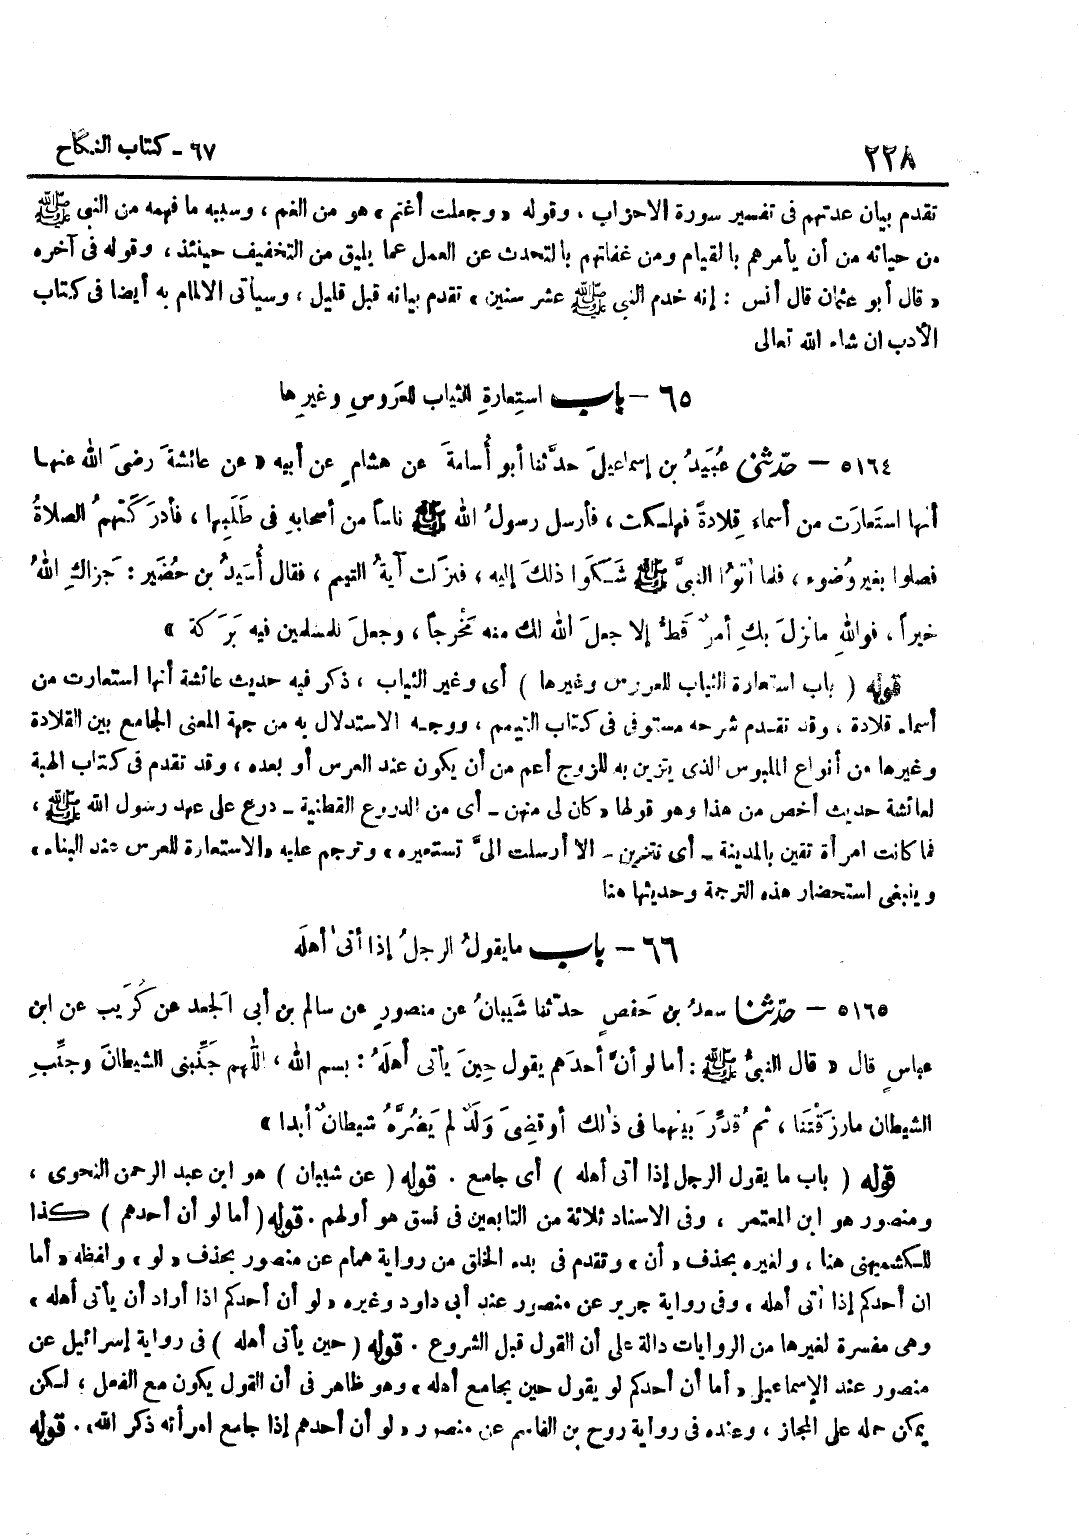 ٢٢٨
٦٧ - كتاب النكاح
تقدم بيان عدتهم فى تفسير سورة الاحزاب ، وقوله « وجعلت أغتم » هو من الغم ، وسببه ما فهمه من النبى ﷺ
من حيائه من أن يأمرهم بالقيام ومن غفلتهم بالتحدث عن العمل عما يليق من التخفيف حينئذ ، وقوله فى آخره
« قال أبو عثمان قال أنس : إنه خدم النبى ﷺ عشر سنين » تقدم بيانه قبل قليل ، وسيأتى الالمام به أيضا فى كتاب
الأدب ان شاء الله تعالى
٦٥ - باب استِعارةِ الثياب للعَروسِ وغيرِها
٥١٦٤ - حدّثنى عُبَيدُ بن إسماعيلَ حدَّثنا أبو أُسامةَ عن هشامٍ عن أبيه « عن عائشةَ رضىَ الله عنها
أنها استَعارَت من أسماءَ قِلادةً فهلَكت ، فأرسل رسولُ الله ﷺ ناساً من أصحابهِ فى طَلَبِها ، فأدرَكَتْهمُ الصلاةُ
فصلوا بغير وُضوء ، فلما أتوُا النبىَّ ﷺ شَكَوا ذلكَ إليه ، فنزَلت آيةُ التيمم ، فقال أُسَيدُ بن حُضَير : جَزاكِ اللهُ
خيراً ، فوالله مانزلَ بكِ أمرٌ قَطُّ إلا جعلَ اللهُ لكِ منه مَخْرجاً ، وجعلَ للمسلمين فيه بَرَكة »
قوله ( باب استعارة الثياب للعروس وغيرها ) أى وغير الثياب ، ذكر فيه حديث عائشة أنها استعارت من
أسماء قلادة ، وقد تقدم شرحه مستوفى فى كتاب التيمم ، ووجه الاستدلال به من جهة المعنى الجامع بين القلادة
وغيرها من أنواع الملبوس الذى يتزين به للزوج أعم من أن يكون عند العرس أو بعده ، وقد تقدم فى كتاب الهبة
لعائشة حديث أخص من هذا وهو قولها « كان لى منهن - أى من الدروع القطنية - درع على عهد رسول الله ﷺ ،
فما كانت امرأة تقين بالمدينة - أى تتزين - الا أرسلت الىّ تستعيره » وترجم عليه « الاستعارة للعرس عند البناء »
وينبغى استحضار هذه الترجمة وحديثها هنا
٦٦ - باب مايقولُ الرجلُ إذا أتىٰ أهلَه
٥١٦٥ - حدّثنا سعدُ بن حَفصٍ حدّثنا شَيبانُ عن منصورٍ عن سالم بن أبى الجَعد عن كُرَيب عن ابن
عباسٍ قال « قال النبىُّ ﷺ : أما لو أنَّ أحدَهم يقول حِينَ يأتى أهلَهُ : بسم الله ، اللّٰهم جَنِّبنى الشيطانَ وجنِّبِ
الشيطان مارزَقْتَنا ، ثم قُدِّرَ بينهما فى ذٰلك أو قضِىَ وَلَدٌ لم يَضُرَّهُ شيطانٌ أبدا »
قوله ( باب ما يقول الرجل إذا أتى أهله ) أى جامع . قوله ( عن شيبان ) هو ابن عبد الرحمن النحوى ،
ومنصور هو ابن المعتمر ، وفى الاسناد ثلاثة من التابعين فى نسق هو أولهم . قوله ( أما لو أن أحدهم ) كذا
للكشميهنى هنا ، ولغيره بحذف « أن » وتقدم فى بدء الخلق من رواية همام عن منصور بحذف « لو » ولفظه « أما
ان أحدكم إذا أتى أهله ، وفى رواية جرير عن منصور عند أبى داود وغيره « لو أن أحدكم اذا أراد أن يأتى أهله »
وهى مفسرة لغيرها من الروايات دالة على أن القول قبل الشروع . قوله ( حين يأتى أهله ) فى رواية إسرائيل عن
منصور عند الإسماعيلى « أما أن أحدكم لو يقول حين يجامع أهله » وهو ظاهر فى أن القول يكون مع الفعل ، لكن
يمكن حمله على المجاز ، وعنده فى رواية روح بن القاسم عن منصور « لو أن أحدهم إذا جامع امرأته ذكر الله » . قوله